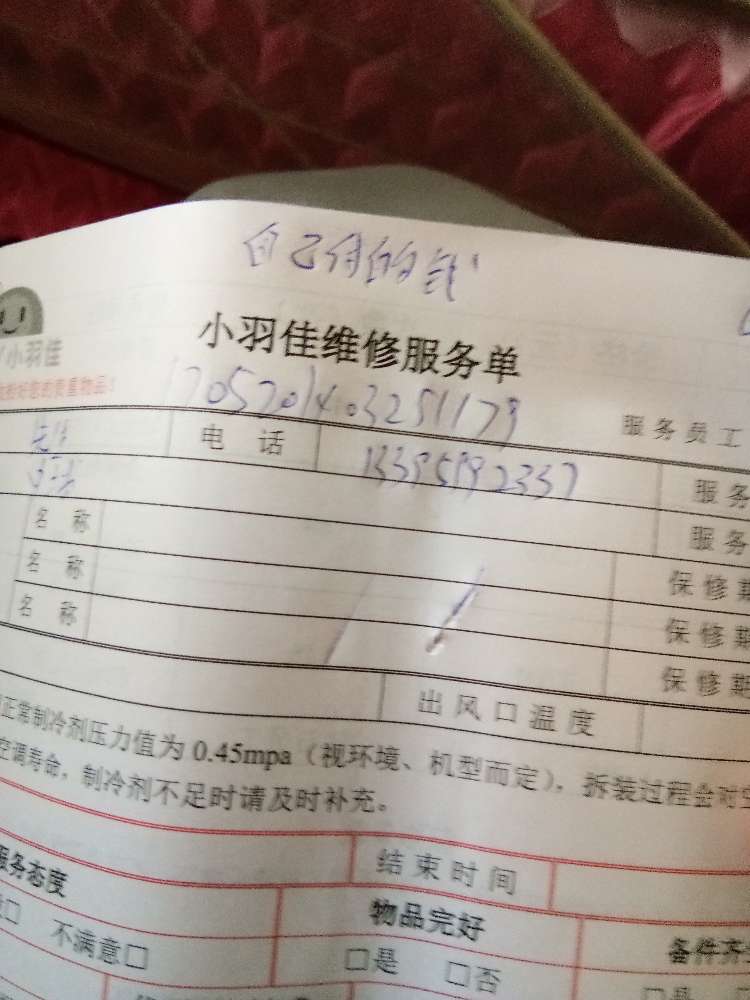 自己付的钱
小羽佳
小羽佳维修服务单
1705701403251179
服务员工
先生
电话
13395992337
服务
服务
名称
保修期
名称
保修期
名称
保修期
出风口温度
正常制冷剂压力值为 0.45mpa（视环境、机型而定），拆装过程会对空
空调寿命，制冷剂不足时请及时补充。
结束时间
服务态度
物品完好
备件齐全
□ 不满意□
□是 □否
□是